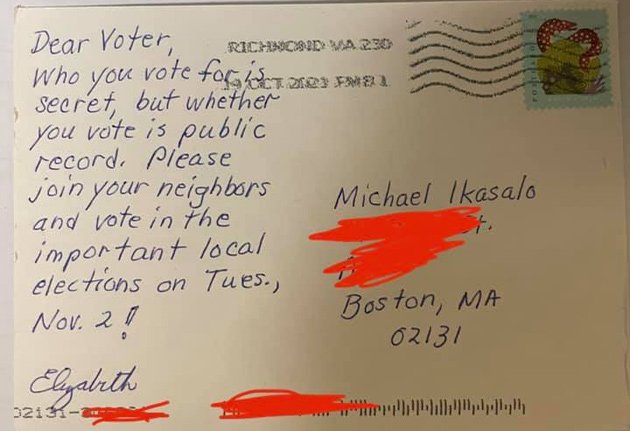 Dear Voter,
Who you vote for is
secret, but whether
you vote is public
record. Please
join your neighbors
and vote in the
important local
elections on Tues.,
Nov. 2!
Elizabeth
RICHMOND VA 230
OCT 2021 PM 8 L
Michael Ikasalo
St.
Boston, MA
02131
02131-